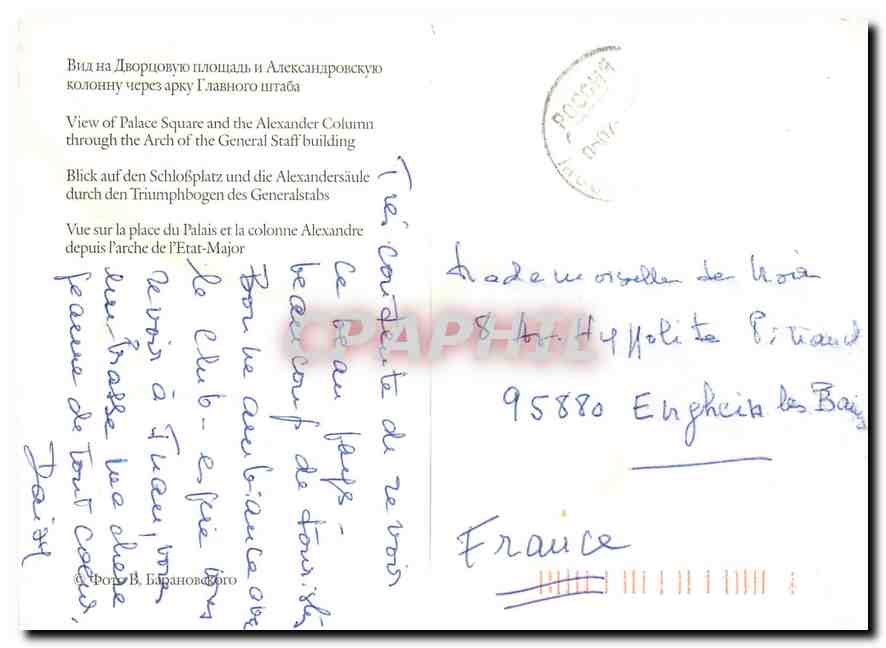 Вид на Дворцовую площадь и Александровскую
колонну через арку Главного штаба
View of Palace Square and the Alexander Column
through the Arch of the General Staff building
Blick auf den Schloßplatz und die Alexandersäule
durch den Triumphbogen des Generalstabs
Vue sur la place du Palais et la colonne Alexandre
depuis l'arche de l'Etat-Major
Très contente de revoir
ce beau pays -
beaucoup de touristes
Bonne ambiance avec
le club - espère vous
revoir à
embrasse ma chère
Jeanne de tout coeur.
Daisy
© Фото В. Барановского
РОССИЯ
Mademoiselle de
8 Hyppolite
95880 Enghein les Bains
France
CPAPHIL